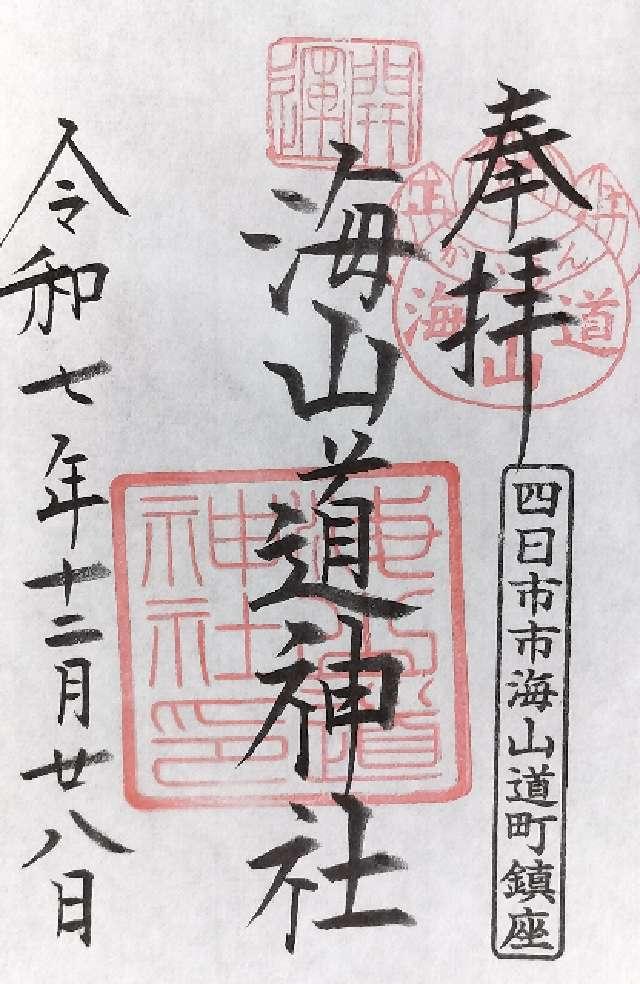 奉拝
四日市市海山道町鎮座
かいさん
海山道
開運
海山道神社
海山道神社印
令和七年十二月廿八日